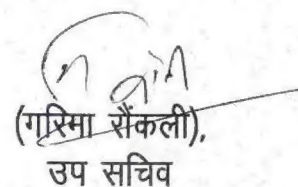 (गरिमा रौंकली),
उप सचिव